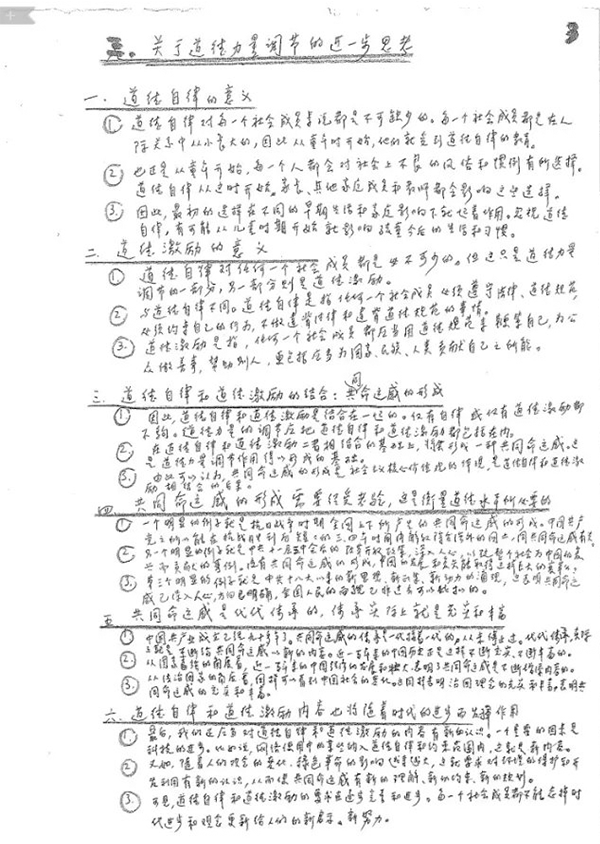 3
三。关于道德力量调节的进一步思考
一、道德自律的意义
① 道德自律对每一个社会成员来说都是不可缺少的。每一个社会成员都是在人
际关系中从小长大的，因此从童年时开始，他们就受到道德自律的教育。
② 也正是从童年开始，每一个人都会对社会上不良的风俗和惯例有所选择。
道德自律从这时开始。家长、其他家庭成员和老师都会影响这些选择。
③ 因此，最初的选择在不同的早期生活和家庭影响下就起着作用。忽视道德
自律，有可能从儿童时期开始就影响孩童今后的生活和习惯。
二、道德激励的意义
① 道德自律对任何一个社会成员都是必不可少的。但这只是道德力量
调节的一部分，另一部分则是道德激励。
② 与道德自律不同。道德自律是指任何一个社会成员必须遵守法律、道德规范，
必须约束自己的行为，不做违背法律和违背道德规范的事情。
③ 道德激励是指，任何一个社会成员都应当用道德规范来鞭策自己，为公
众做善事，帮助别人，更包括应当为国家、民族、人类贡献自己之所能。
三、道德自律和道德激励的结合：共同命运感的形成
① 因此，道德自律和道德激励是结合在一起的。仅有自律或仅有道德激励都
不够。道德力量的调节应把道德自律和道德激励都包括在内。
② 在道德自律和道德激励二者相结合的基础上，将会形成一种共同命运感。这
是道德力量调节作用得以形成的基础。
③ 由此可以认为，共同命运感的形成是社会主义核心价值观的体现，是道德自律和道德激
励相结合的
四、共同命运感的形成需要经受考验，这是衡量道德水平所必要的
① 一个明显的例子就是抗日战争时期全国上下所产生的共同命运感的形成。中国共产
党之所以能在抗战胜利后
② 另一个明显的例子就是中共十一届三中全会后的改革开放政策，深入人心
③ 第三个明显的例子就是中共十八大以来的新思想、新方案、新动力的涌现，这表明共同命运
感已深入人心，方向已明确，全国人民的
五、共同命运感是代代传承的，传承实际上就是充实和丰富
① 中国共产党成立已经九十多年了。共同命运感的传承是一代接着一代的，从未停止过。代代传承，实际
上就是不断给共同命运感以新的内容。近一百年来的中国历史正是这样不断充实、不断丰富的。
② 从国家富强的角度看，近一百年来的中国经济的发展和壮大，表明了共同命运感是不断增添内容的。
③ 从依法治国的角度看，同样可以看到中国社会的变化。这同样表明治国理念的充实和丰富，表明共
同命运感的充实和丰富。
六、道德自律和道德激励内容也将随着时代的进步而发挥作用
① 最后，我们还应当对道德自律和道德激励的内容有新的认识。一个重要的因素是
科技的进步。比如说，网络使用中的某些纳入道德自律和约束范围内，这就是新内容。
② 又如，随着人的观念的变化，绿色革命的影响越来越大，这就要求对环境的保护和开
发利用有新的认识，从而使共同命运感有新的理解、新的约束、新的规划。
③ 可见，道德自律和道德激励的要求在逐步完善和进步。每一个社会成员都不能忘掉时
代进步和观念更新给人们的新启示、新努力。